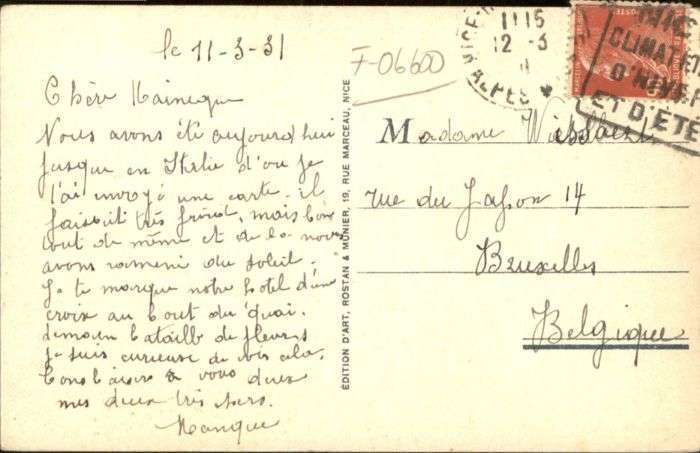 le 11-3-31
Chère
Nous avons été aujourd'hui
jusque en Italie d'où je
t'ai envoyé une carte. il
faisait très froid, mais beau
tout de même et de là nous
avons ramené du soleil.
Je te marque notre hotel d'une
croix au bout du quai.
demain bataille de fleurs
je suis curieuse de voir cela.
Bons baisers à vous deux
mes deux très chers.
F-06600
NICE
11 15
12-3
ALPES
CLIMAT ET
D'HIVER
ET D'ÉTÉ
Madame
rue du Japon 14
Bruxelles
Belgique
ÉDITION D'ART, ROSTAN & MUNIER, 19, RUE MARCEAU, NICE